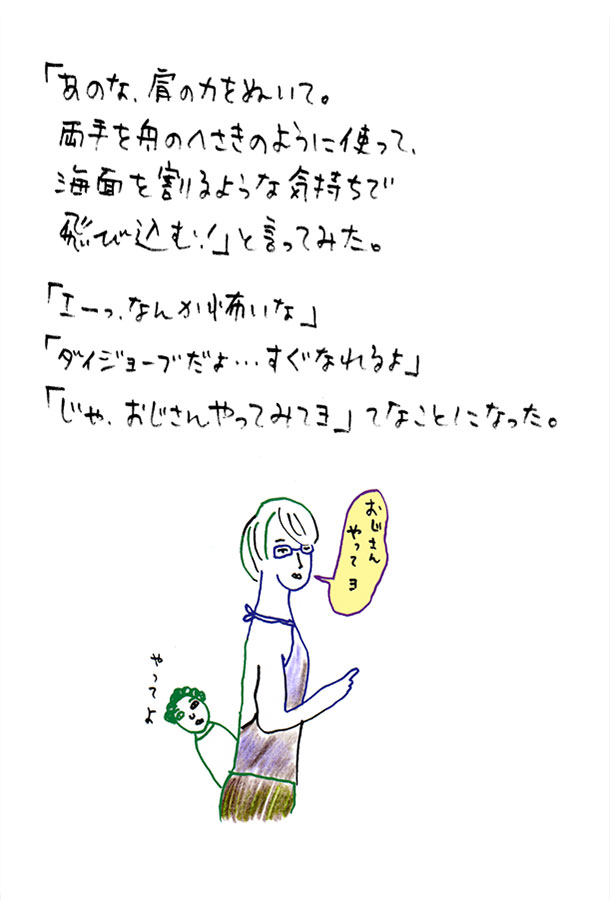 「あのな、肩の力をぬいて。
両手を舟のへさきのように使って、
海面を割るような気持ちで
飛び込む!」と言ってみた。
「エーっ、なんか怖いな」
「ダイジョーブだよ…すぐなれるよ」
「じゃ、おじさんやってみてヨ」てなことになった。
おじさん
やってヨ
やってよ